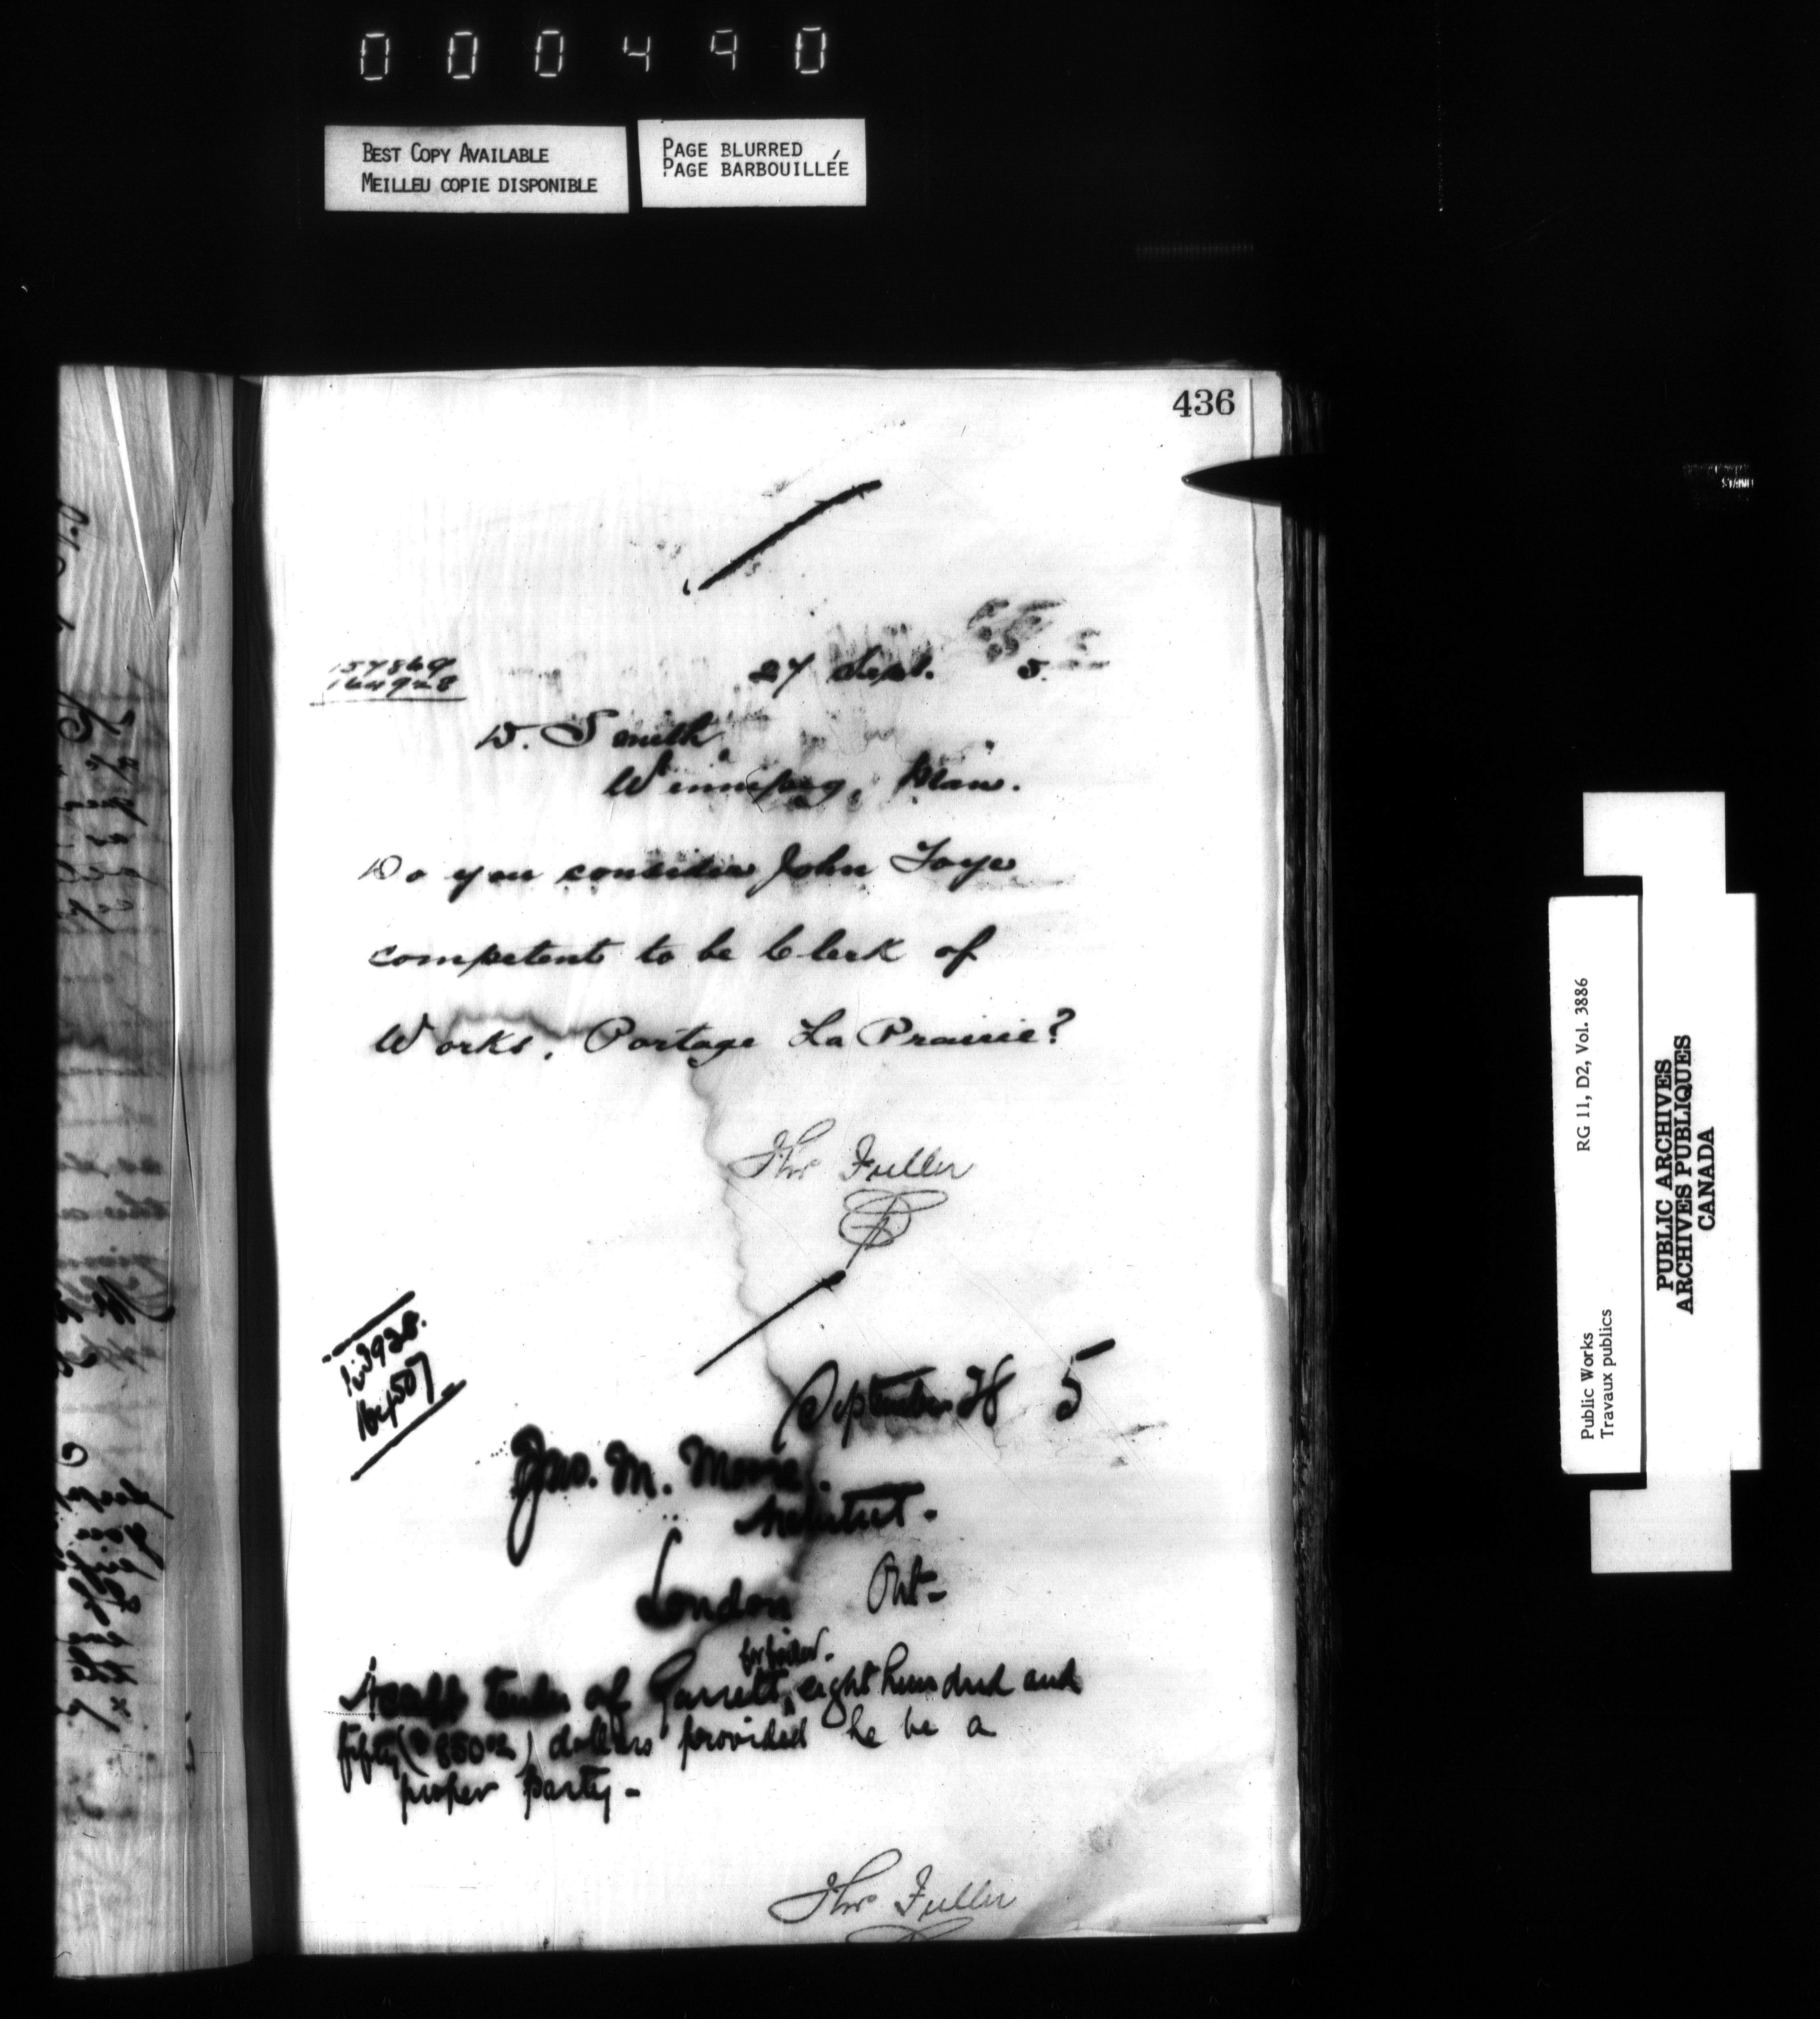 000490
BEST COPY AVAILABLE
MEILLEU COPIE DISPONIBLE
PAGE BLURRED
PAGE BARBOUILLÉE
436
157869
164928
27 Sept. 5.
D. Smith,
Winnipeg, Man.
Do you consider John
competent to be Clerk of
Works, Portage La Prairie?
Thos Fuller
September 28 5
Jno. M. Moore.
Architect.
London Ont-
Accept tender of Garrett, eight hundred and
fifty ($850 ) dollars provided he be a
proper party-
Thos Fuller
Public Works
Travaux publics
RG 11, D2, Vol. 3886
PUBLIC ARCHIVES
ARCHIVES PUBLIQUES
CANADA